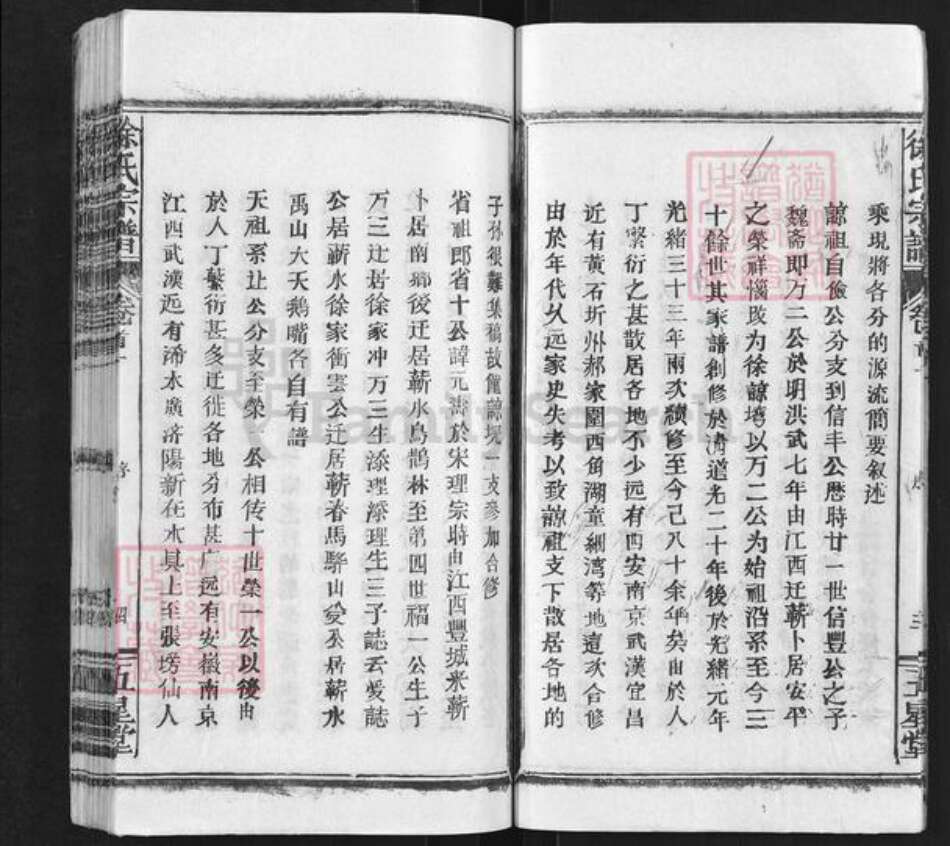 徐氏宗譜
乘現將各分的源流簡要叙述
諒祖自儉公分支到信丰公曆時廿一世信豐公之子
魏斋即万二公於明洪武七年由江西迁蘄卜居安平
之榮祥惱改为徐諒塆以万二公为始祖沿系至今三
十餘世其家譜創修於清道光二十年後於光緒元年
光緒三十三年兩次續修至今已八十余年矣由於人
丁繁衍之甚散居各地不少远有西安南京武漢宜昌
近有黄石圻州郝家園西角湖童細湾等地這次合修
由於年代久远家史失考以致諒祖支下散居各地的
子孙很難集稿故僅諒垸一支参加合修
省祖郎省十公諱元壽於宋理宗時由江西豐城来蘄
卜居南鄉後迁居蘄水鸟鹊林至第四世福一公生子
万三迁居徐家冲万三生添理添理生三子誌云爱誌
公居蘄水徐家衝雲公迁居蘄春馬骅山爱公居蘄水
禹山大天鹅嘴各自有譜
天祖系让公分支至榮一公相传十世榮一公以後由
於人丁繁衍甚多迁徙各地分布甚广远有安徽南京
江西武漢近有浠水廣济陽新在本具上至張塝仙人
徐氏宗譜
卷首一
五星堂